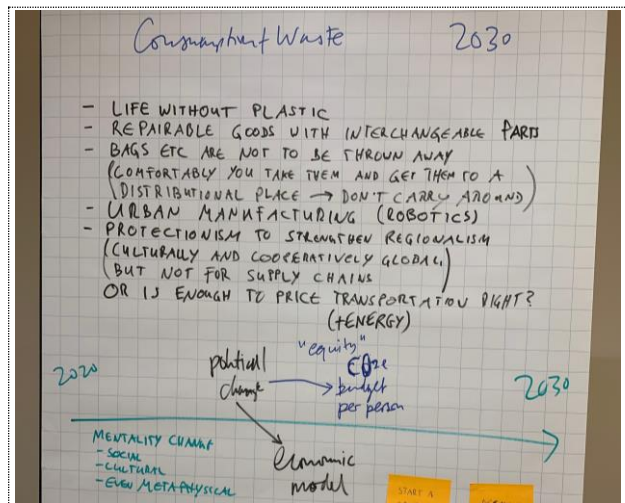 Consumption & Waste 2030
- LIFE WITHOUT PLASTIC
- REPAIRABLE GOODS WITH INTERCHANGEABLE PARTS
- BAGS ETC ARE NOT TO BE THROWN AWAY
(COMFORTABLY YOU TAKE THEM AND GET THEM TO A
DISTRIBUTIONAL PLACE → DON'T CARRY AROUND)
- URBAN MANUFACTURING (ROBOTICS)
- PROTECTIONISM TO STRENGTHEN REGIONALISM
(CULTURALLY AND COOPERATIVELY GLOBAL,
BUT NOT FOR SUPPLY CHAINS)
OR IS ENOUGH TO PRICE TRANSPORTATION RIGHT?
(+ENERGY)
2020
political
change
"equity"
budget
per person
2030
MENTALITY CHANGE
- SOCIAL
- CULTURAL
- EVEN METAPHYSICAL
economic
model
START A